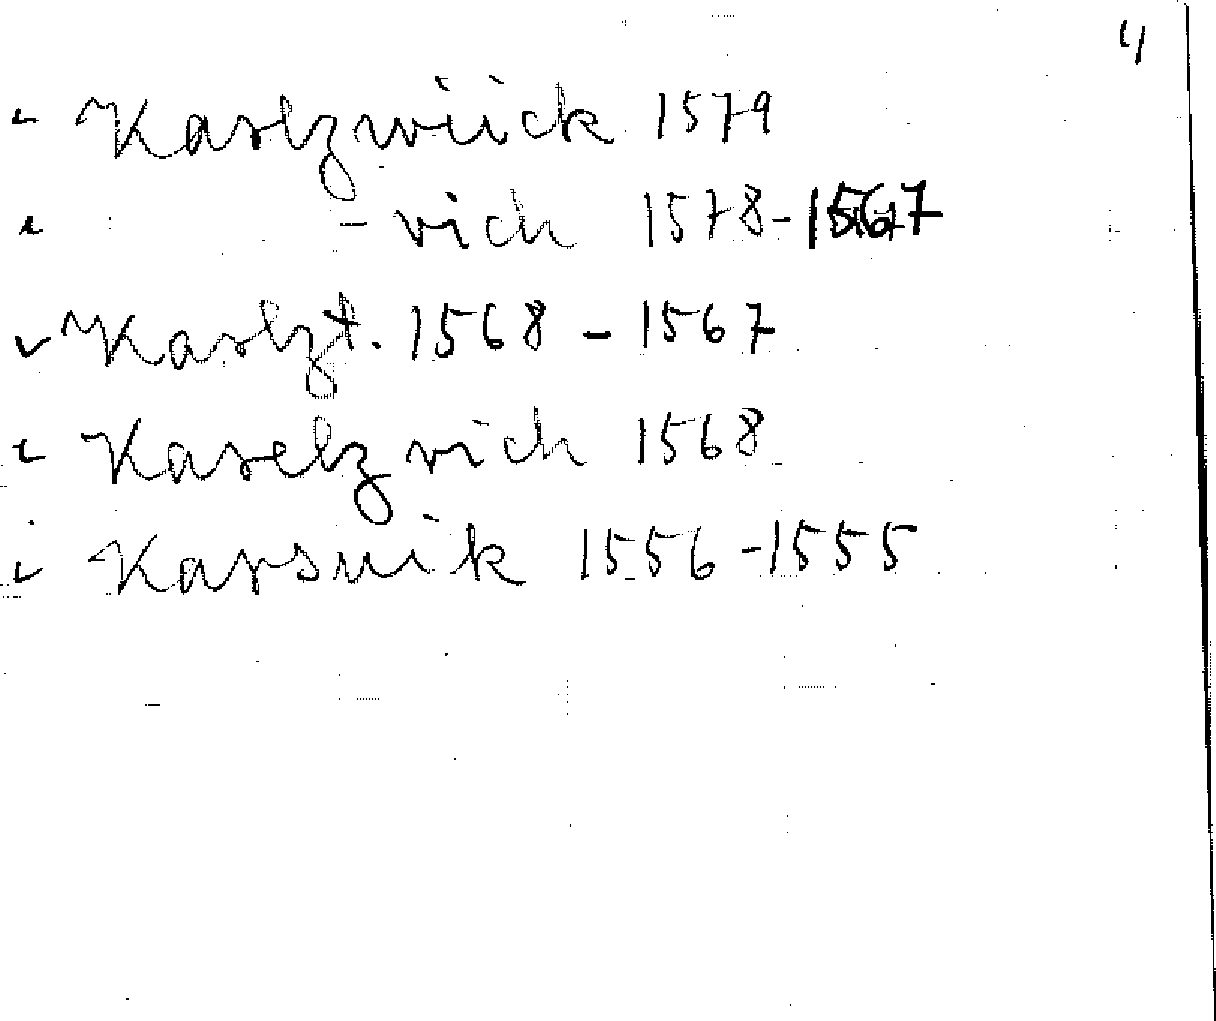 4
Karlzwiick 1579
- vich 1578-1567
Karlzt. 1568 - 1567
Karelzvich 1568
Karsnik 1556-1555